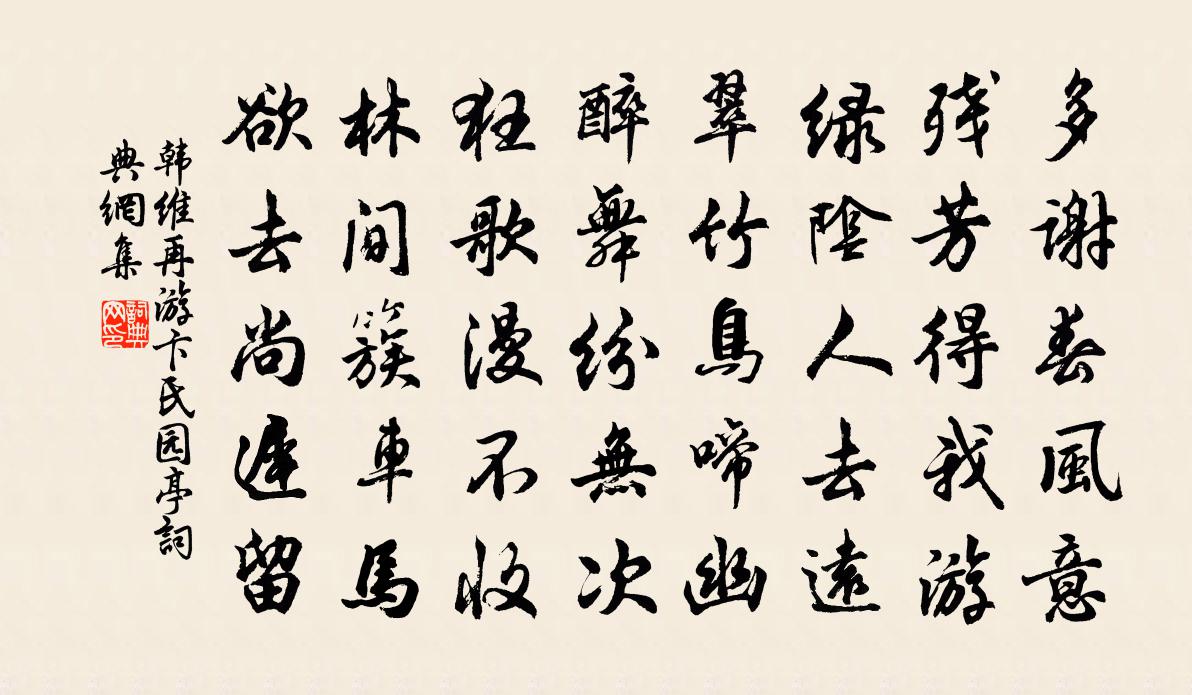 多謝春風意
残芳得我游
緑陰人去遠
翠竹鳥啼幽
醉舞紛無次
狂歌漫不收
林間簇車馬
欲去尚遲留
韩維再游卞氏园亭詞
典網集
詞典
网印